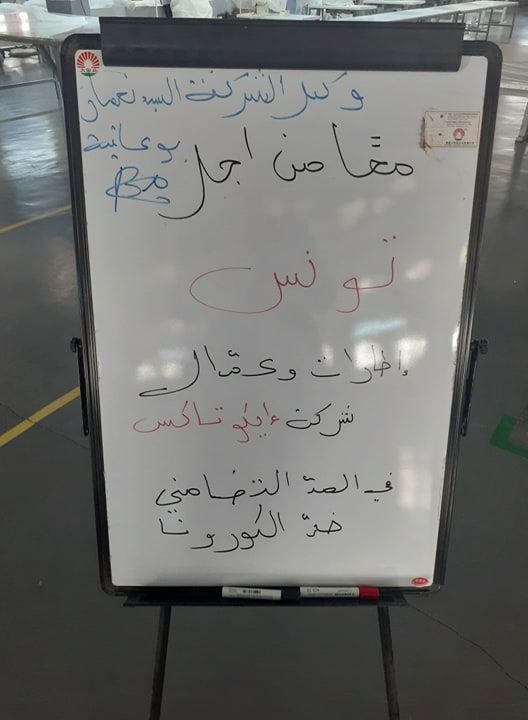 وكيل الشركة السيد نعمان
بوعانية
معًا من اجل
تونس
إطارات وعمّال
شركة إيكوتاكس
في المدّ التضامني
ضدّ الكورونا